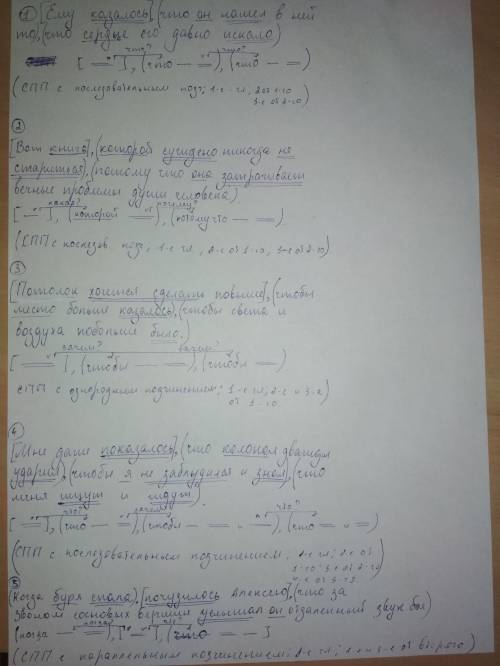 ①[Ему казалось], (что он нашел в ней
то), (что сердце его давно искало)
что? что?
[ = ], (что — =), (что — =)
(СПП с последовательным подч; 1-е - гл, 2 от 1-го
3-е от 2-го)
②
[Вот книга], (которой суждено никогда не
стариться), (потому что она затрагивает
вечные проблемы души человека).
какая? почему?
[ — ], (которой =), (потому что — =)
(СПП с послед. подч, 1-е гл, 2-е от 1-го, 3-е от 2-го)
③
[Потолок хочется сделать повыше], (чтобы
место больше казалось), (чтобы света и
воздуха побольше было.)
зачем? зачем?
[ = ], (чтобы — =), (чтобы =)
СПП с однородным подчинением; 1-е гл; 2-е и 3-е
от 1-го
④
[Мне даже показалось], (что колокол дважды
ударил), (чтобы я не заблудился и знал), (что
меня ищут и ждут).
что? зачем? что?
[ = ], (что — =), (чтобы — = и =), (что = и =)
(СПП с последовательным подчинением; 1-е гл; 2-е от
1-го; 3-е от 2-го
4-е от 3-го
⑤
(Когда буря спала), [почудилось Алексею], (что за
звоном сосновых вершин услышал он отдаленный звук боя)
когда? что?
(когда — =), [ = ], (что = — )
(СПП с параллельным подчинением; 2-е гл; 1-е и 3-е от второго)